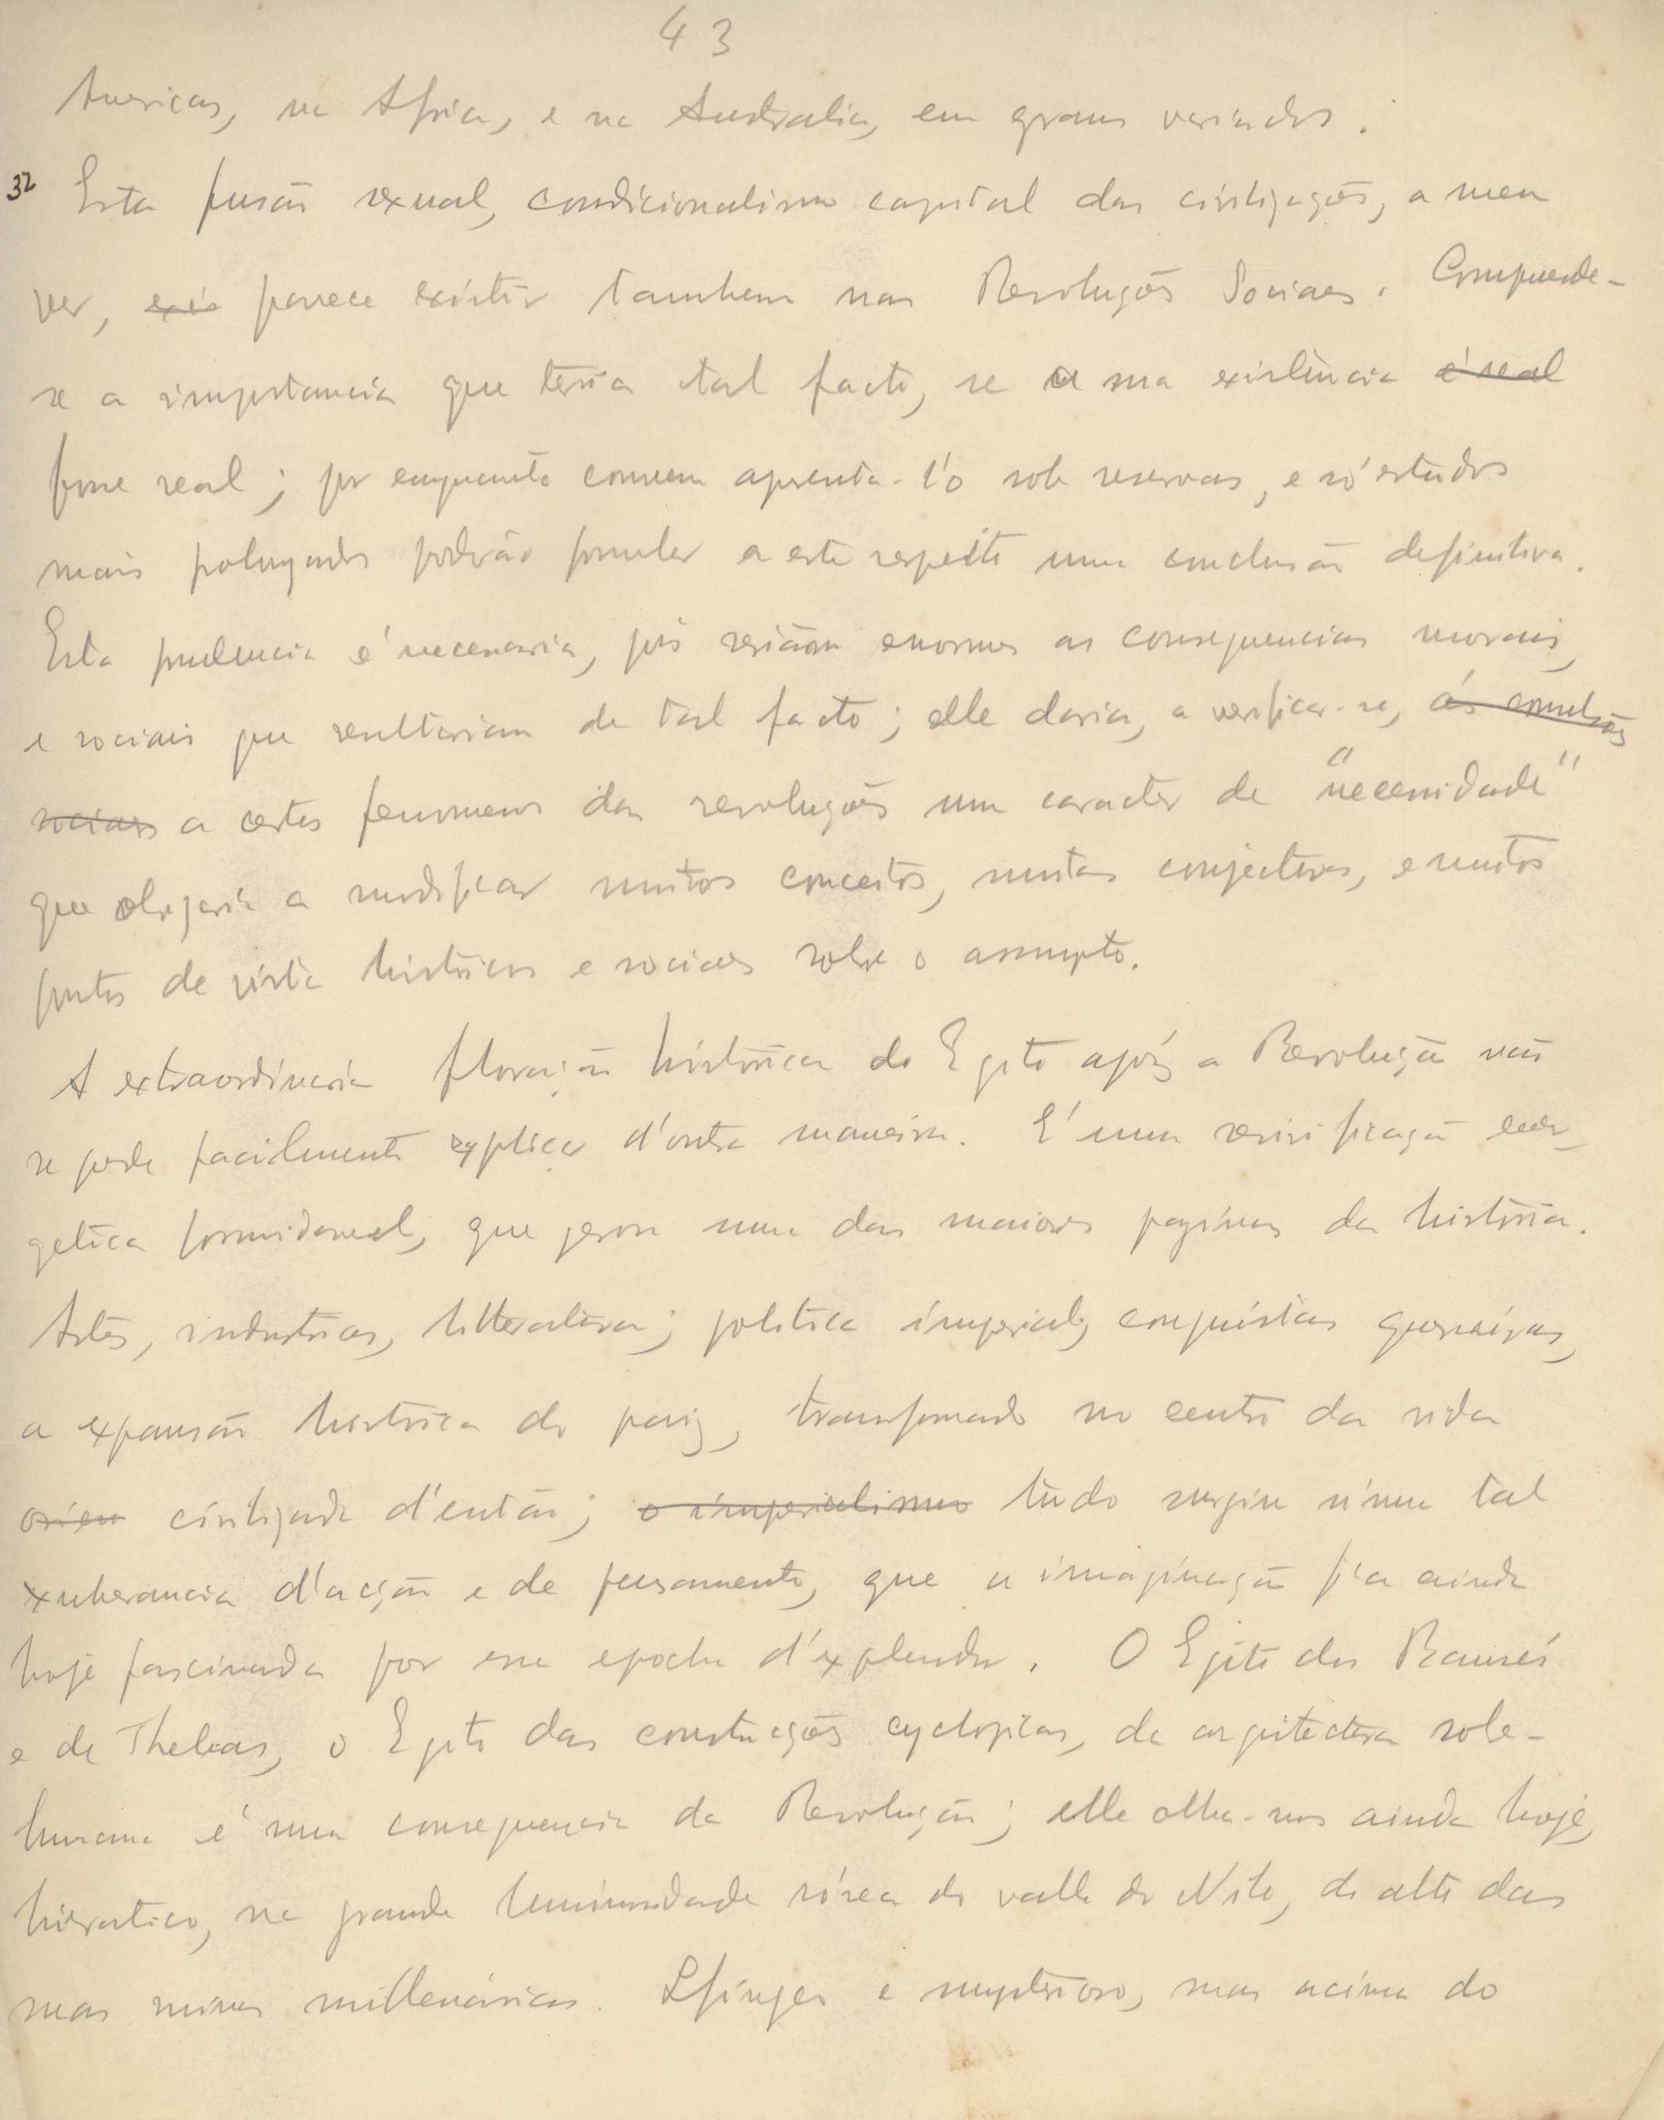 43
Americas, na Africa, e na Australia, em graus variados.
32 Esta fusão sexual, condicionalismo capital das civilizações, a meu
ver, exis parece existir tambem nas Revoluções Sociaes. Compreende-
se a importancia que teria tal facto, se a sua existência é real
fosse real; por emquanto convem apresenta-l'o sob reservas, e só estudos
mais prolongados poderão formular a este respeito uma conclusão definitiva.
Esta prudencia é necessaria, pois serião enormes as consequencias moraes,
e sociais que resultariam de tal facto; elle daria, a verificar-se, ás convulsões
sociaes a certos fenomenos das revoluções um caracter de "necessidade"
que obrigaria a modificar muitos conceitos, muitas conjecturas, e muitos
pontos de vista historicos e sociaes sobre o assumpto.
A extraordinaria floração historica do Egito após a Revolução não
se pode facilmente explicar d'outra maneira. E' uma revivificação ener-
getica formidavel, que gerou uma das maiores paginas da historia.
Artes, industrias, litteratura; politica imperial, conquistas guerreiras,
a expansão historica do paiz, transformado no centro da vida
orien civilizada d'então; o imperialismo tudo surgiu n'uma tal
exuberancia d'acção e de pensamento, que a imaginação fica ainda
hoje fascinada por essa epocha d'explendor. O Egito dos Ramsés
e de Thebas, o Egito das construcções cyclopicas, da arquitectura sobre-
humana é uma consequencia da Revolução; elle olha-nos ainda hoje,
hieratico, na grande luminosidade rósea do valle do Nilo, do alto das
suas ruinas millenárias. Sfinges e mysterioso, mas acima do